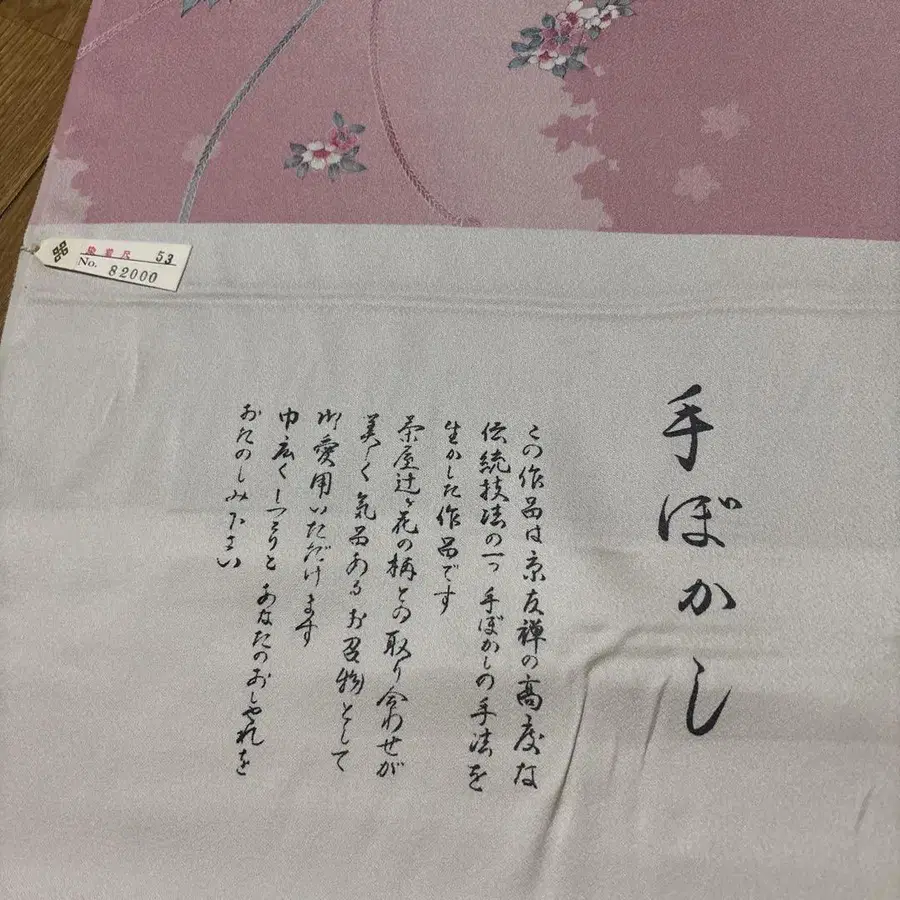 手ぼかし
この作品は京友禅の高度な
伝統技法の一つ手ぼかしの手法を
生かした作品です
茶屋辻ヶ花の柄との取り合わせが
美しく気品あるお召物として
御愛用いただけます
巾広くしっとりとあなたのおしゃれを
おたのしみ下さい
染着尺 53
No. 82000